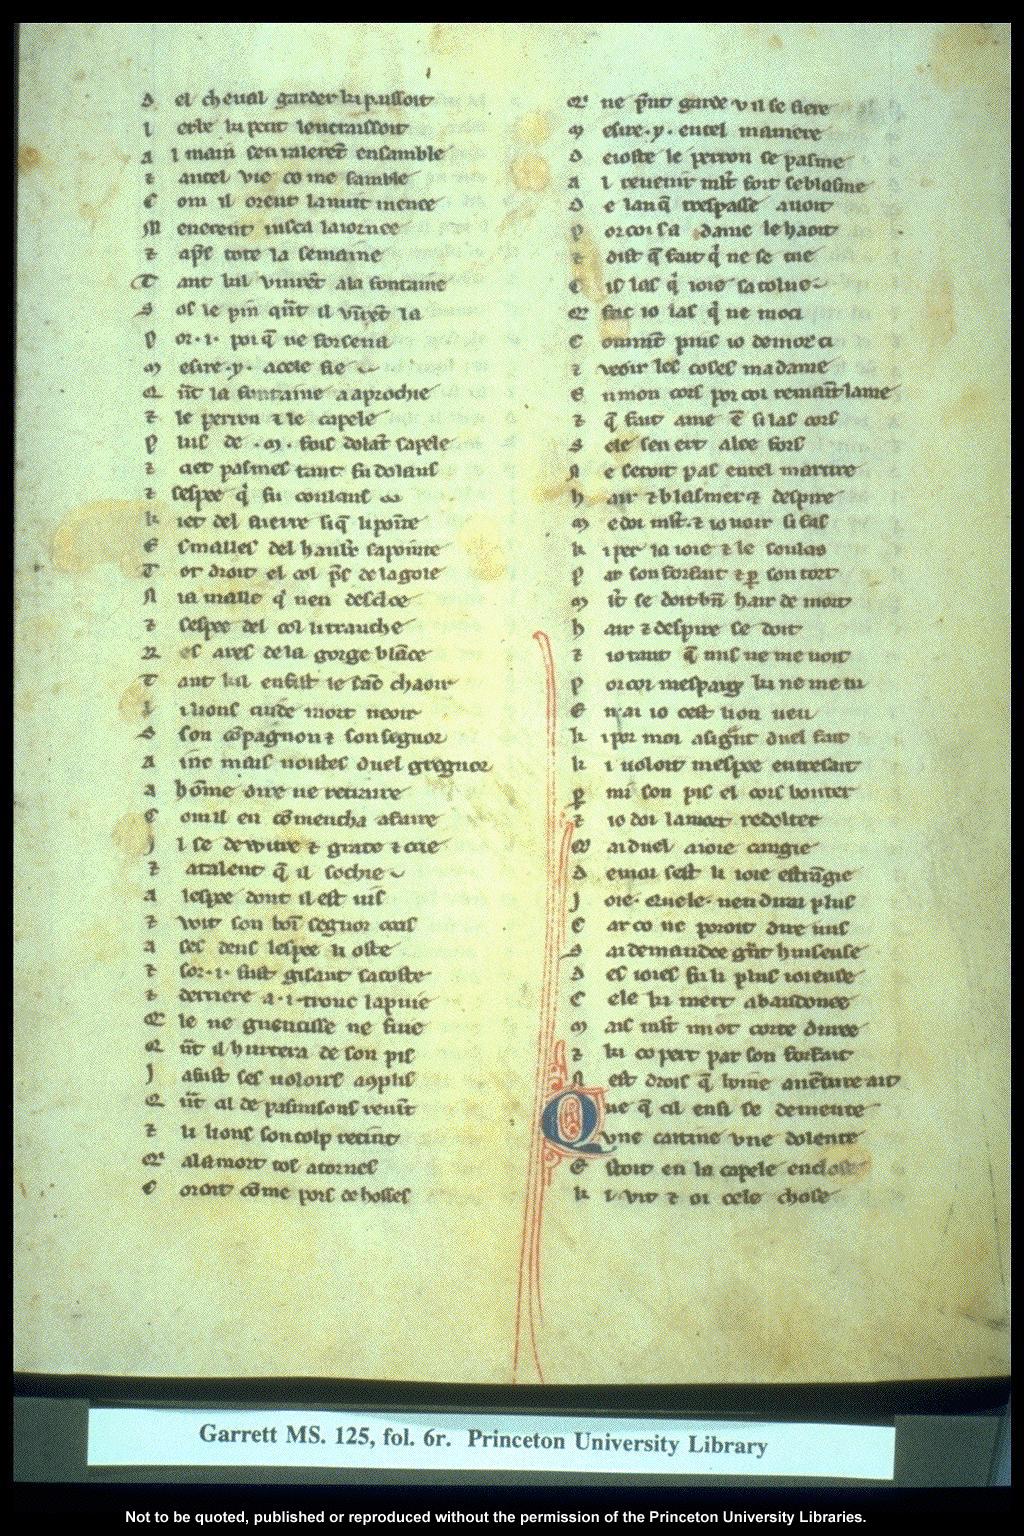 D el cheual garder li puissoit
L erbe la petit loncraissoit
A l main sen ralerēt ensamble
⁊ autel vie co me samble
C om il orent la nuit mence
M enerent iusca la iornee
⁊ apſ tote la semaine
T ant kil vinrēt a la fontaine
S os le pin qn̄t il vīrēt la
P or .i. poi q̄ ne forsena
M esire .y. a cele fie
Q n̄t la fontaine a aprochie
⁊ le perron ⁊ le capele
P lus de .m. fois dolāt sapele
⁊ ciet pasmes tant fu dolans
⁊ sespee q̄ fu coulans
K iet del fuerre si q̄ li pointe
E s malles del hauberc sapointe
T ot droit el col pſ de la gole
N i a malle q̄ nen descloe
⁊ sespee del col li trance
R es ares de la gorge blāce
T ant kil en fist le sāc chaoir
L i lions cuide mort veoir
S on cōpagnon ⁊ son segnor
A inc mais noistes duel gregnor
A hōme dire ne retraire
C om il en cōmencha a faire
J l se detuire ⁊ grate ⁊ crie
⁊ a talent q̄ il socie
A lespee dont il est uis
⁊ voit son bō segnor ocis
A ses dens lespee li oste
⁊ sor .i. fust gisant sacoste
⁊ derriere a .i. tronc lapuie
Q le ne guencisse ne fuie
Q n̄t il hurtera de son pis
J a fust ses uoloirs aꝯplis
Q n̄t cil de pasmisons reuīt
⁊ li lions son colp retint
Q a la mort tos atornes
C oroit cōme pors de bosses
Q ne p̄nt garde v il se fiere
M esire .y. en tel maniere
D encoste le perron se pasme
A l reuenir ml't fort se blasme
D e lan q̄ trespasse auoit
P or coi sa dame le haoit
⁊ dist q̄ fait q̄ ne se tue
C is las q̄ ioie sa tolue
Q fac io las q̄ ne moci
C oument puis io demorer ci
⁊ veoir les coses ma dame
E n mon cors por coi remaīt lame
⁊ q̄ fait ame ē si las cors
S ele sen ert aloe fors
N e seroit pas en tel martire
H air ⁊ blasmer ⁊ despire
M e doi ml't ⁊ io uoir si fas
K i pert la ioie ⁊ le soulas
P ar son forfait ⁊ ꝑ son tort
M l't se doit bn̄ hair de mort
H air ⁊ despire se doit
⁊ io tant q̄ nus ne me uoit
P or coi mespaig ke ne me tu
E n ai io cest lion ueu
K i por moi a si grāt duel fait
K i uoloit mespee entresait
P mi son pis el cors bouter
⁊ io doi la mort redolter
Q ai duel a ioie cangie
D e moi sest li ioie estrāgie
J oie quele nen dirai plus
C ar co ne poroit dire nus
S ai demandee gn̄t huiseuse
D es ioies fu li plus ioieuse
C ele ki mert abandonee
M ais ml't mot corte duree
⁊ ki co pert par son forfait
N est drois q̄ bone auēture ait
Q ue q̄ cil ensi se demente
vne caitiue vne dolente
E stoit en la capele enclose
K i vit ⁊ oi cele chose
Garrett MS. 125, fol. 6r. Princeton University Library
Not to be quoted, published or reproduced without the permission of the Princeton University Libraries.